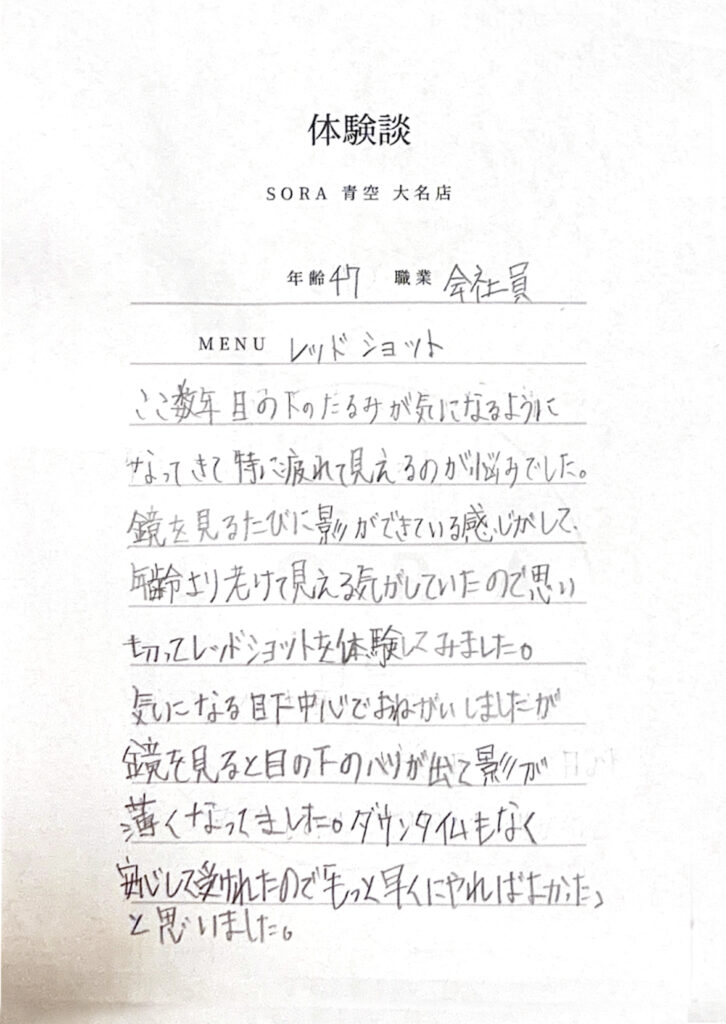 体験談
SORA 青空 大名店
年齢 47 職業 会社員
MENU レッドショット
ここ数年目の下のたるみが気になるように
なってきて特に疲れて見えるのが悩みでした。
鏡を見るたびに影ができている感じがして、
年齢より老けて見える気がしていたので思い
切ってレッドショットを体験してみました。
気になる目下中心でおねがいしましたが
鏡を見ると目の下のハリが出て影が
薄くなってきました。ダウンタイムもなく
安心して受けれたので「もっと早くにやればよかった」
と思いました。